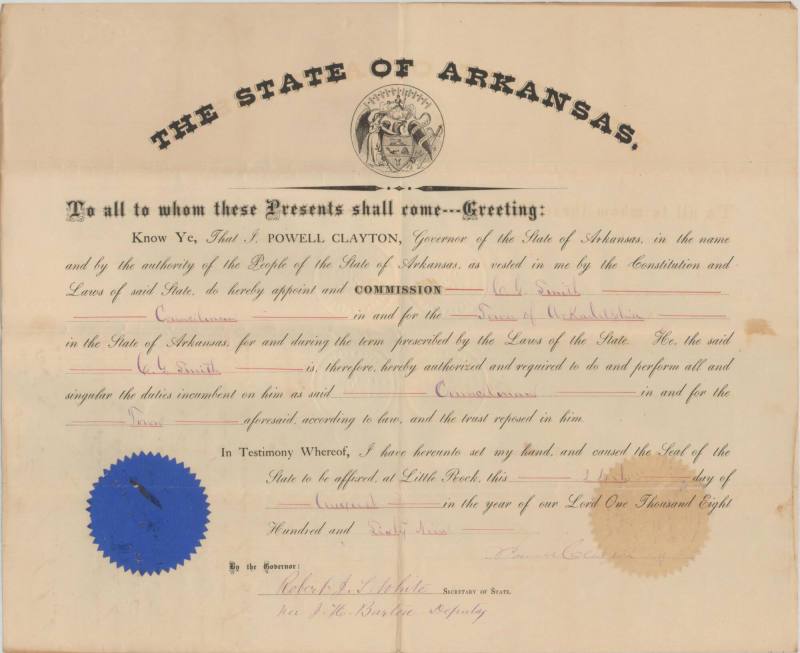 THE STATE OF ARKANSAS.
To all to whom these Presents shall come---Greeting:
Know Ye, That I, POWELL CLAYTON, Governor of the State of Arkansas, in the name
and by the authority of the People of the State of Arkansas, as vested in me by the Constitution and
Laws of said State, do hereby appoint and COMMISSION C. G. Smith
Councilman in and for the Town of Arkadelphia
in the State of Arkansas, for and during the term prescribed by the Laws of the State. He, the said
C. G. Smith is, therefore, hereby authorized and required to do and perform all and
singular the duties incumbent on him as said Councilman in and for the
Town aforesaid, according to law, and the trust reposed in him.
In Testimony Whereof, I have hereunto set my hand, and caused the Seal of the
State to be affixed, at Little Rock, this day of
August in the year of our Lord One Thousand Eight
Hundred and Sixty Nine
Powell Clayton
By the Governor:
Robert J. T. White SECRETARY OF STATE.
Per J. H. Barton Deputy